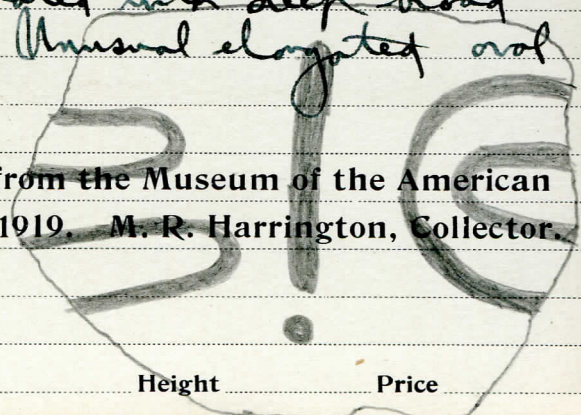 deep
Unusual elongated oval
from the Museum of the American
1919. M. R. Harrington, Collector.
Height Price